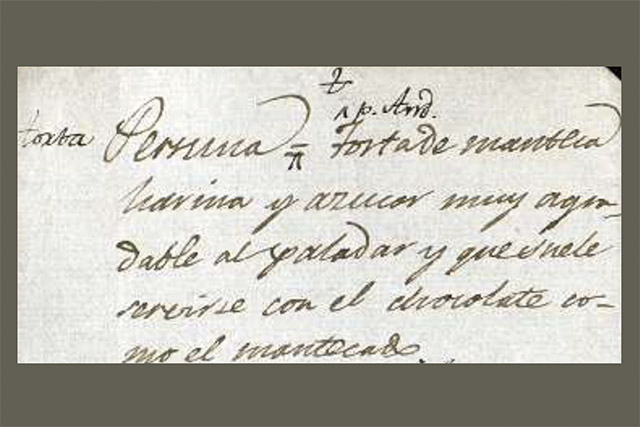 p. And.
torta Perruna = Torta de manteca
harina y azucar muy agra-
dable al paladar y que suele
servirse con el chocolate co-
mo el mantecado